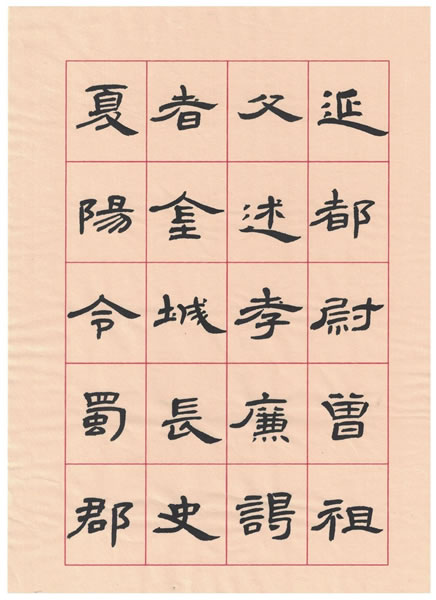 延都尉曾祖
父述孝廉謁
者金城長史
夏陽令蜀郡